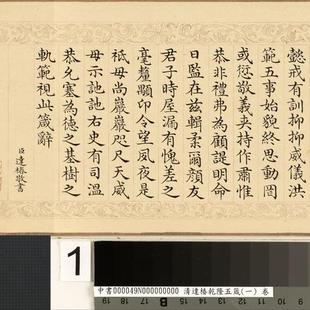 懿戒有訓抑抑威儀洪
範五事始貌終思動罔
或愆敬義夾持作肅惟
恭非禮弗為顧諟明命
日監在茲輯柔爾顏友
君子時屋漏有愧差之
毫釐顒卬令望夙夜是
祗毋尚巖巖咫尺天威
毋示訑訑右史有司溫
恭允塞為德之基樹之
軌範視此箴辭
臣達椿敬書
1
中書000049N000000000 清達椿乾隆五箴(一) 卷